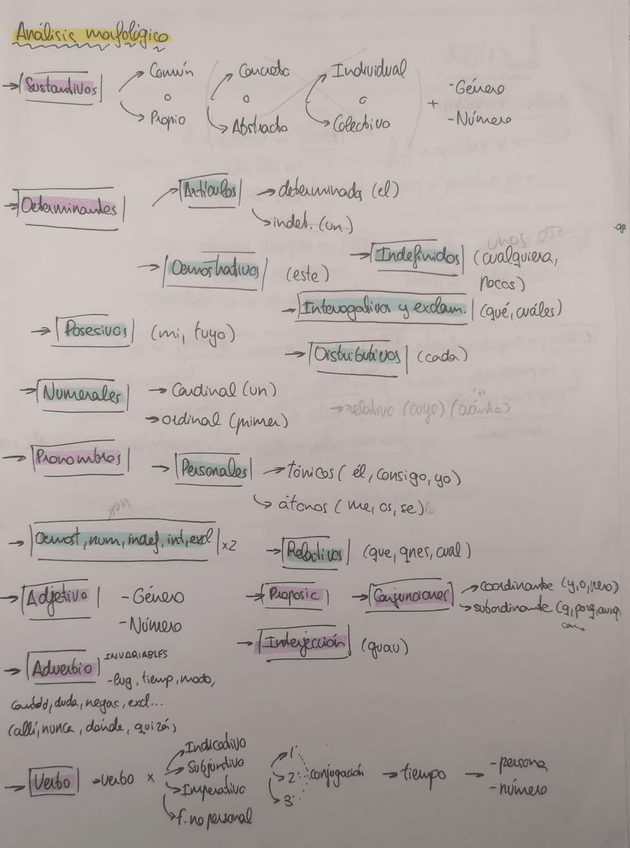 Análisis morfológico
→ Sustantivos
Común o Propio
Concreto o Abstracto
Individual o Colectivo
+ -Género
-Número
→ Determinantes
→ Artículos → determinada (el)
→ indet. (un)
→ Demostrativos (este)
→ Indefinidos (cualquiera,
pocos)
→ Interrogativos y exclam. (qué, cuáles)
→ Posesivos (mi, tuyo)
→ Distributivos (cada)
→ Numerales → Cardinal (un)
→ ordinal (primer)
→ relativo (cuyo)
→ Pronombres → Personales → tónicos (él, consigo, yo)
→ átonos (me, os, se)
→ Demost, num, indef, int, excl x2
→ Relativos (que, qnes, cual)
→ Adjetivo - Género
- Número
→ Preposic
→ Conjunciones → coordinante (y, o, pero)
→ subordinante (q, porq, aunq
→ Interjección (guau)
→ Adverbio INVARIABLES
-lug, tiemp, modo,
cantdd, duda, negac, excl...
(allí, nunca, dónde, quizá)
→ Verbo → verbo x
Indicativo
Subjuntivo
Imperativo
f. no personal
1ª
2ª conjugación → tiempo → -persona
3ª
-número